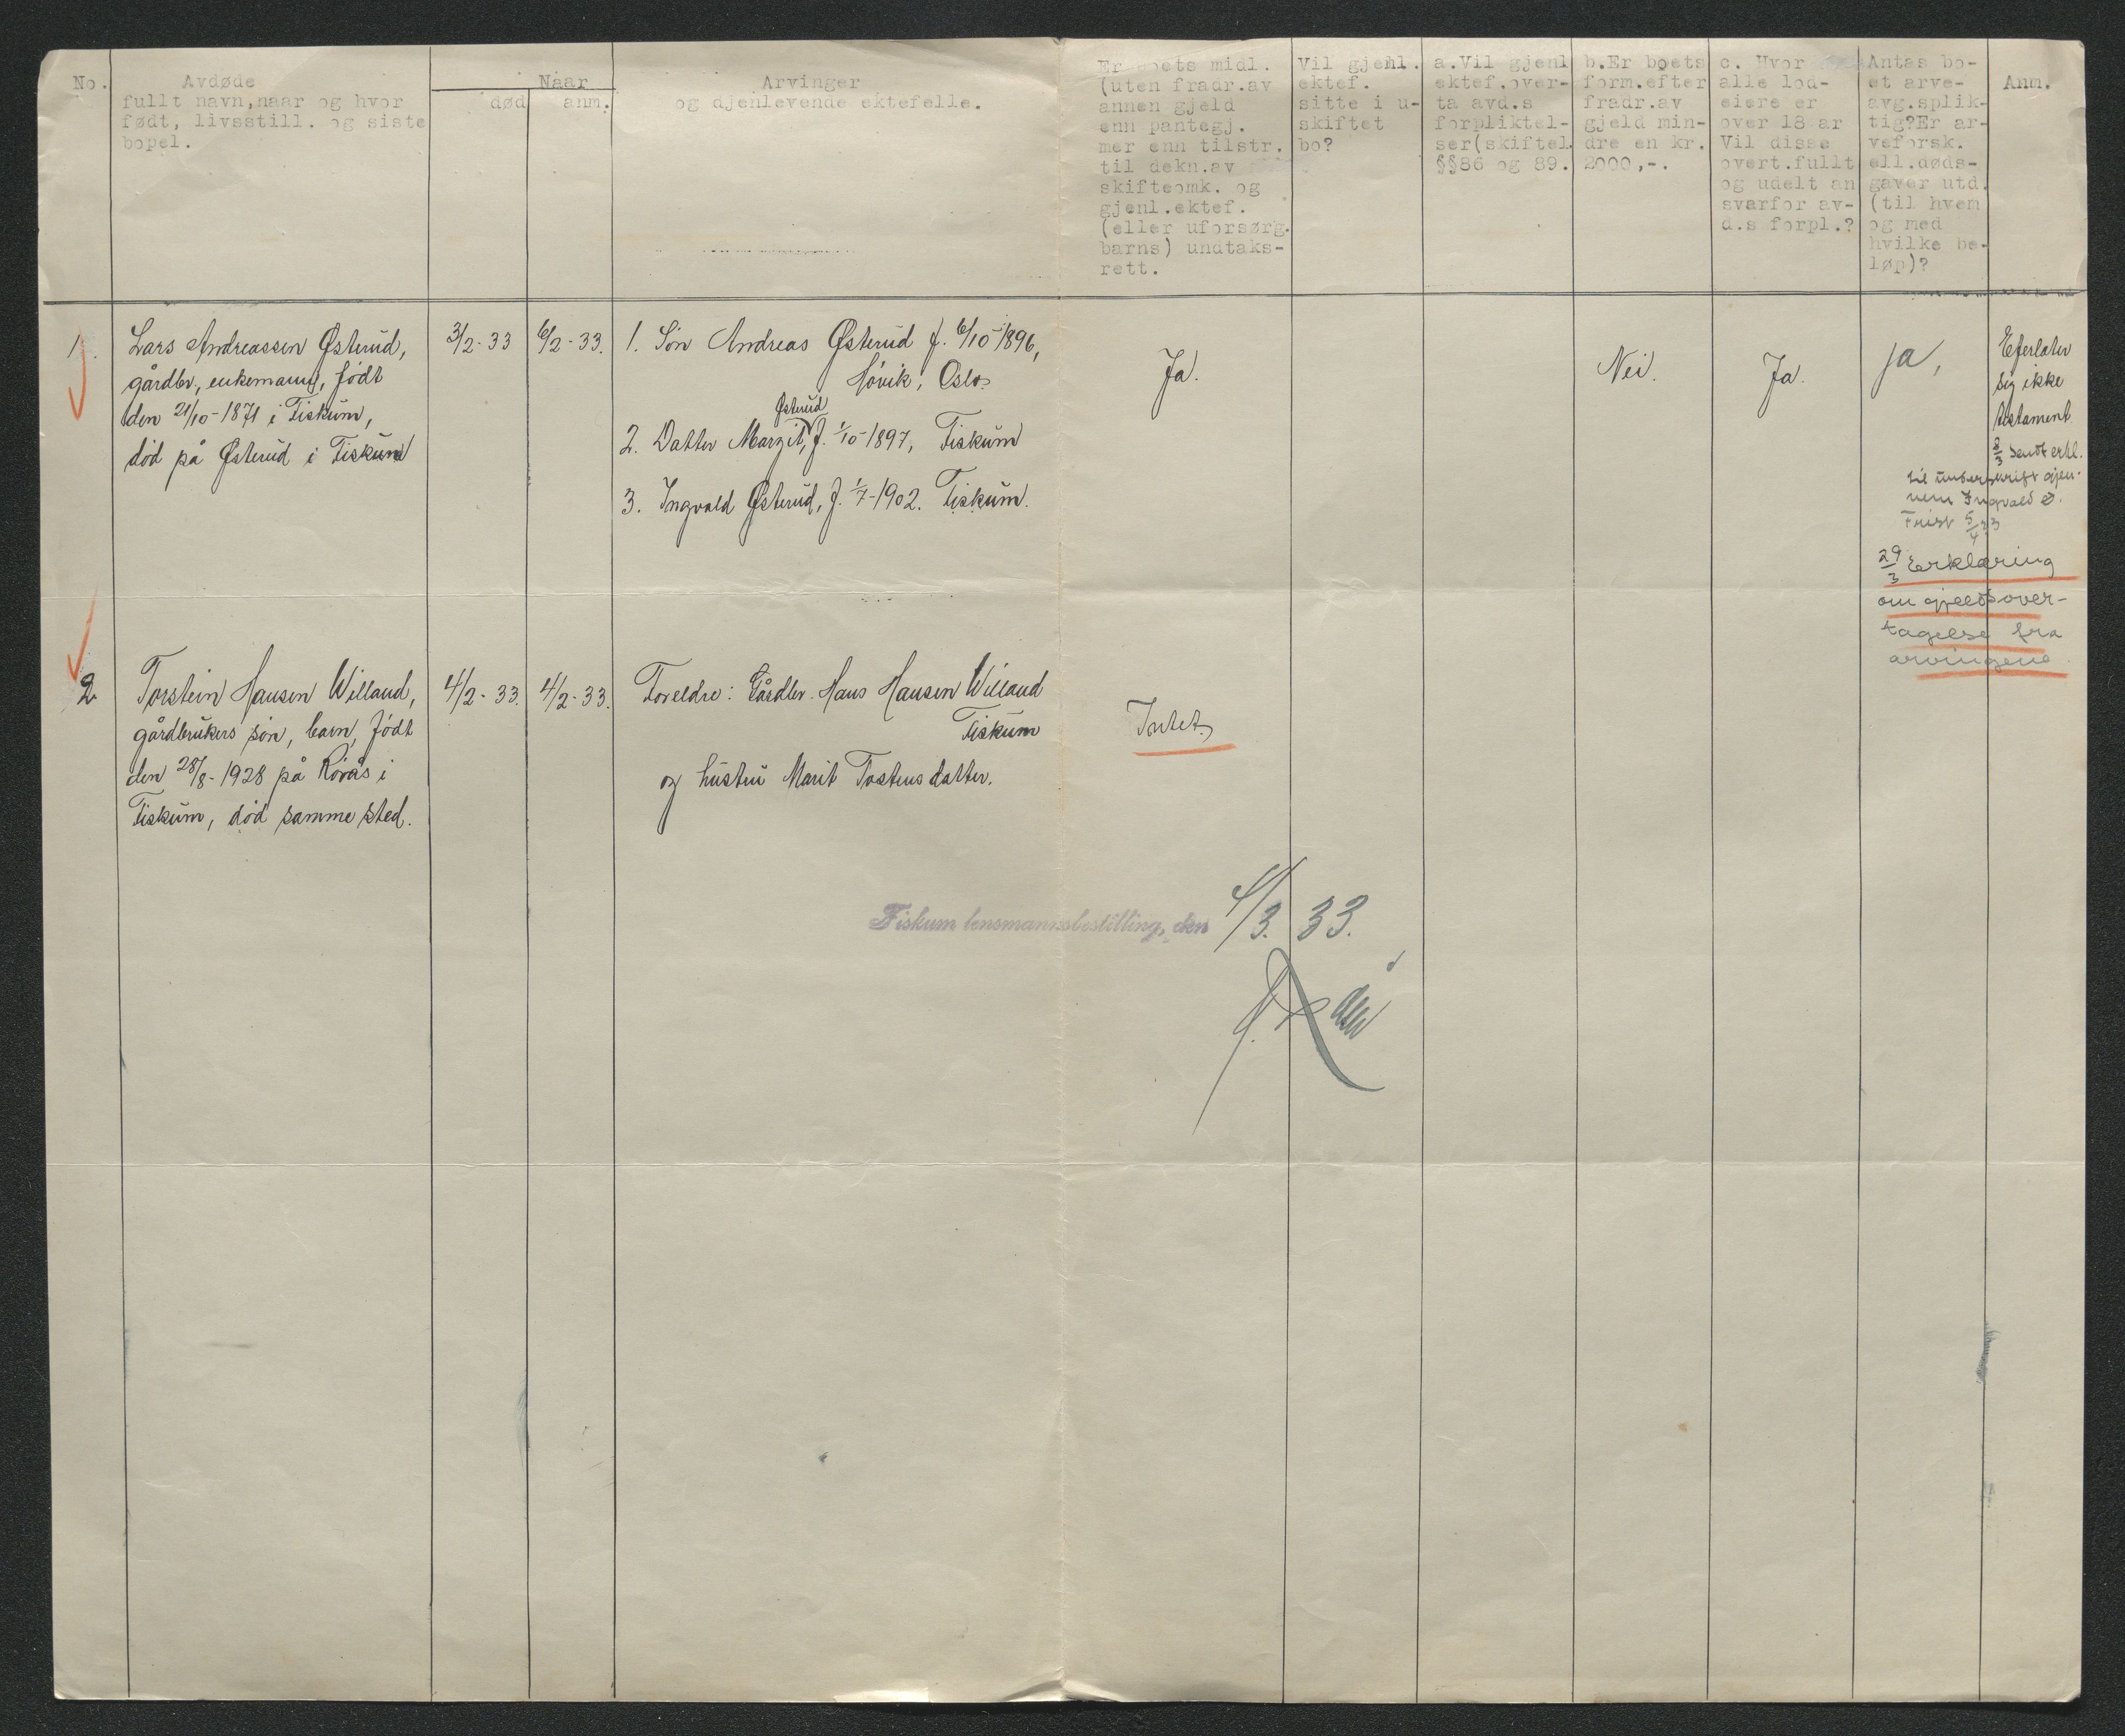 No.
Avdøde
fullt navn,naar og hvor
født, livsstill. og siste
bopel.
Naar
død
anm.
Arvinger
og djenlevende ektefelle.
Er boets midl.
(uten fradr.av
annen gjeld
enn pantegj.
mer enn tilstr.
til dekn.av
skifteomk. og
gjenl.ektef.
(eller uforsørg.
barns) undtaks-
rett.
Vil gjenl.
ektef.
sitte i u-
skiftet
bo?
a.Vil gjenl
ektef.over-
ta avd.s
forpliktel-
ser(skiftel.
§§86 og 89.
b.Er boets
form.efter
fradr.av
gjeld min-
dre en kr.
2000,-.
c. Hvor
alle lod-
eiere er
over 18 ar
Vil disse
overt.fullt
og udelt an
svarfor av-
d.s forpl.?
Antas bo-
et arve-
avg.splik-
tig?Er ar-
veforsk.
ell.døds-
gaver utd.
(til hvem
og med
hvilke be-
løp)?
Anm.
1.
Lars Andreassen Østerud,
gårdbr., enkemann, født
den 21/10-1871 i Fiskum,
død på Østerud i Fiskum
3/2-33
6/2-33.
1. Søn Andreas Østerud f. 6/10-1896,
Høvik, Oslo.
Østerud
2. Datter Margit, f. 1/10-1897, Fiskum
3. Ingvald Østerud, f. 1/7-1902. Fiskum.
Ja.
Nei.
Ja.
ja,
Efterlater
sig ikke
testament.
8/3 sendt erkl.
til underskrift gjen-
nem Ingvald Ø.
Frist 5/4 33
29/3 Erklæring
om gjeldsover-
tagelse fra
arvingene.
2
Torstein Hansen Willand,
gårdbrukers søn, barn, født
den 28/8-1928 på Rørås i
Fiskum, død samme sted.
4/2-33.
4/2-33.
Foreldre: Gårdbr. Hans Hansen Willand
Fiskum
og hustru Marit Tostensdatter.
Intet.
Fiskum lensmannsbestilling, den 4/3. 33.